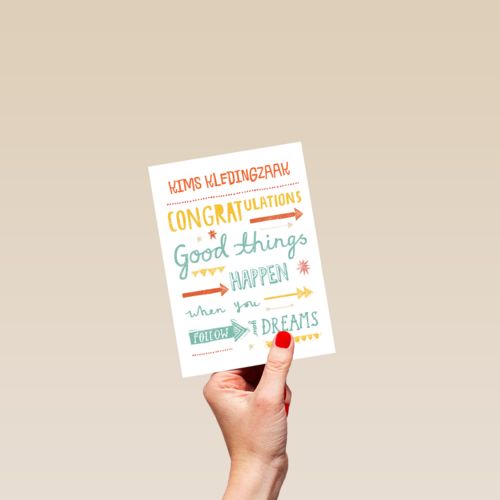 KIMS KLEDINGZAAK
CONGRATULATIONS
Good things
HAPPEN
when you
FOLLOW your DREAMS